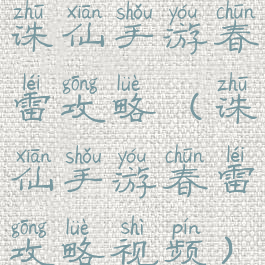 zhū xiān shǒu yóu chūn
诛仙手游春
léi gōng lüè zhū
雷攻略（诛
xiān shǒu yóu chūn léi
仙手游春雷
gōng lüè shì pín
攻略视频）